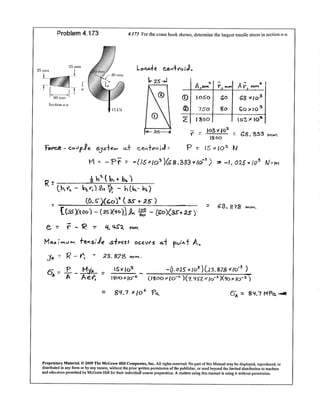 Problem 4.173
4.173 For the crane hook shown, determine the largest tensile stress in section a-a.
35 mm
25 mm
40 mm
60 mm
Section a-a
a
a
15 kN
Locate centroid.
25
②
①
35
A, mm² r̄, mm A r̄, mm³
① 1050 60 63 × 10³
② 750 80 60 × 10³
Σ 1800 103 × 10³
r̄ = 103 × 10³ / 1800 = 68.333 mm.
Force-couple system at centroid: P = 15 × 10³ N
M = -P r̄ = -(15 × 10³)(68.333 × 10⁻³) = -1.025 × 10³ N·m
R = ½ h² (b₁ + b₂) / (b₁ r₂ - b₂ r₁) ln r₂/r₁ - h (b₁ - b₂)
= (0.5)(60)² (35 + 25) / [(35)(100) - (25)(40)] ln 100/40 - (60)(35 + 25) = 63.878 mm.
e = r̄ - R = 4.452 mm
Maximum tensile stress occurs at point A.
y_A = R - r₁ = 23.878 mm.
σ_A = P/A - M y_A / A e r₁ = 15 × 10³ / 1800 × 10⁻⁶ - -(1.025 × 10³)(23.878 × 10⁻³) / (1800 × 10⁻⁶)(4.452 × 10⁻³)(40 × 10⁻³)
= 84.7 × 10⁶ Pa σ_A = 84.7 MPa ◄
Proprietary Material. © 2009 The McGraw-Hill Companies, Inc. All rights reserved. No part of this Manual may be displayed, reproduced, or
distributed in any form or by any means, without the prior written permission of the publisher, or used beyond the limited distribution to teachers
and educators permitted by McGraw-Hill for their individual course preparation. A student using this manual is using it without permission.